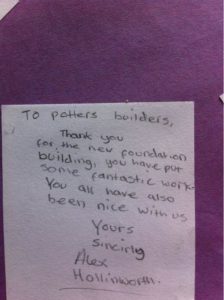 To potters builders,
Thank you
for the new foundation
building, you have put
some fantastic work
You all have also
been nice with us
Yours
sincirly
Alex
Hollinworth.